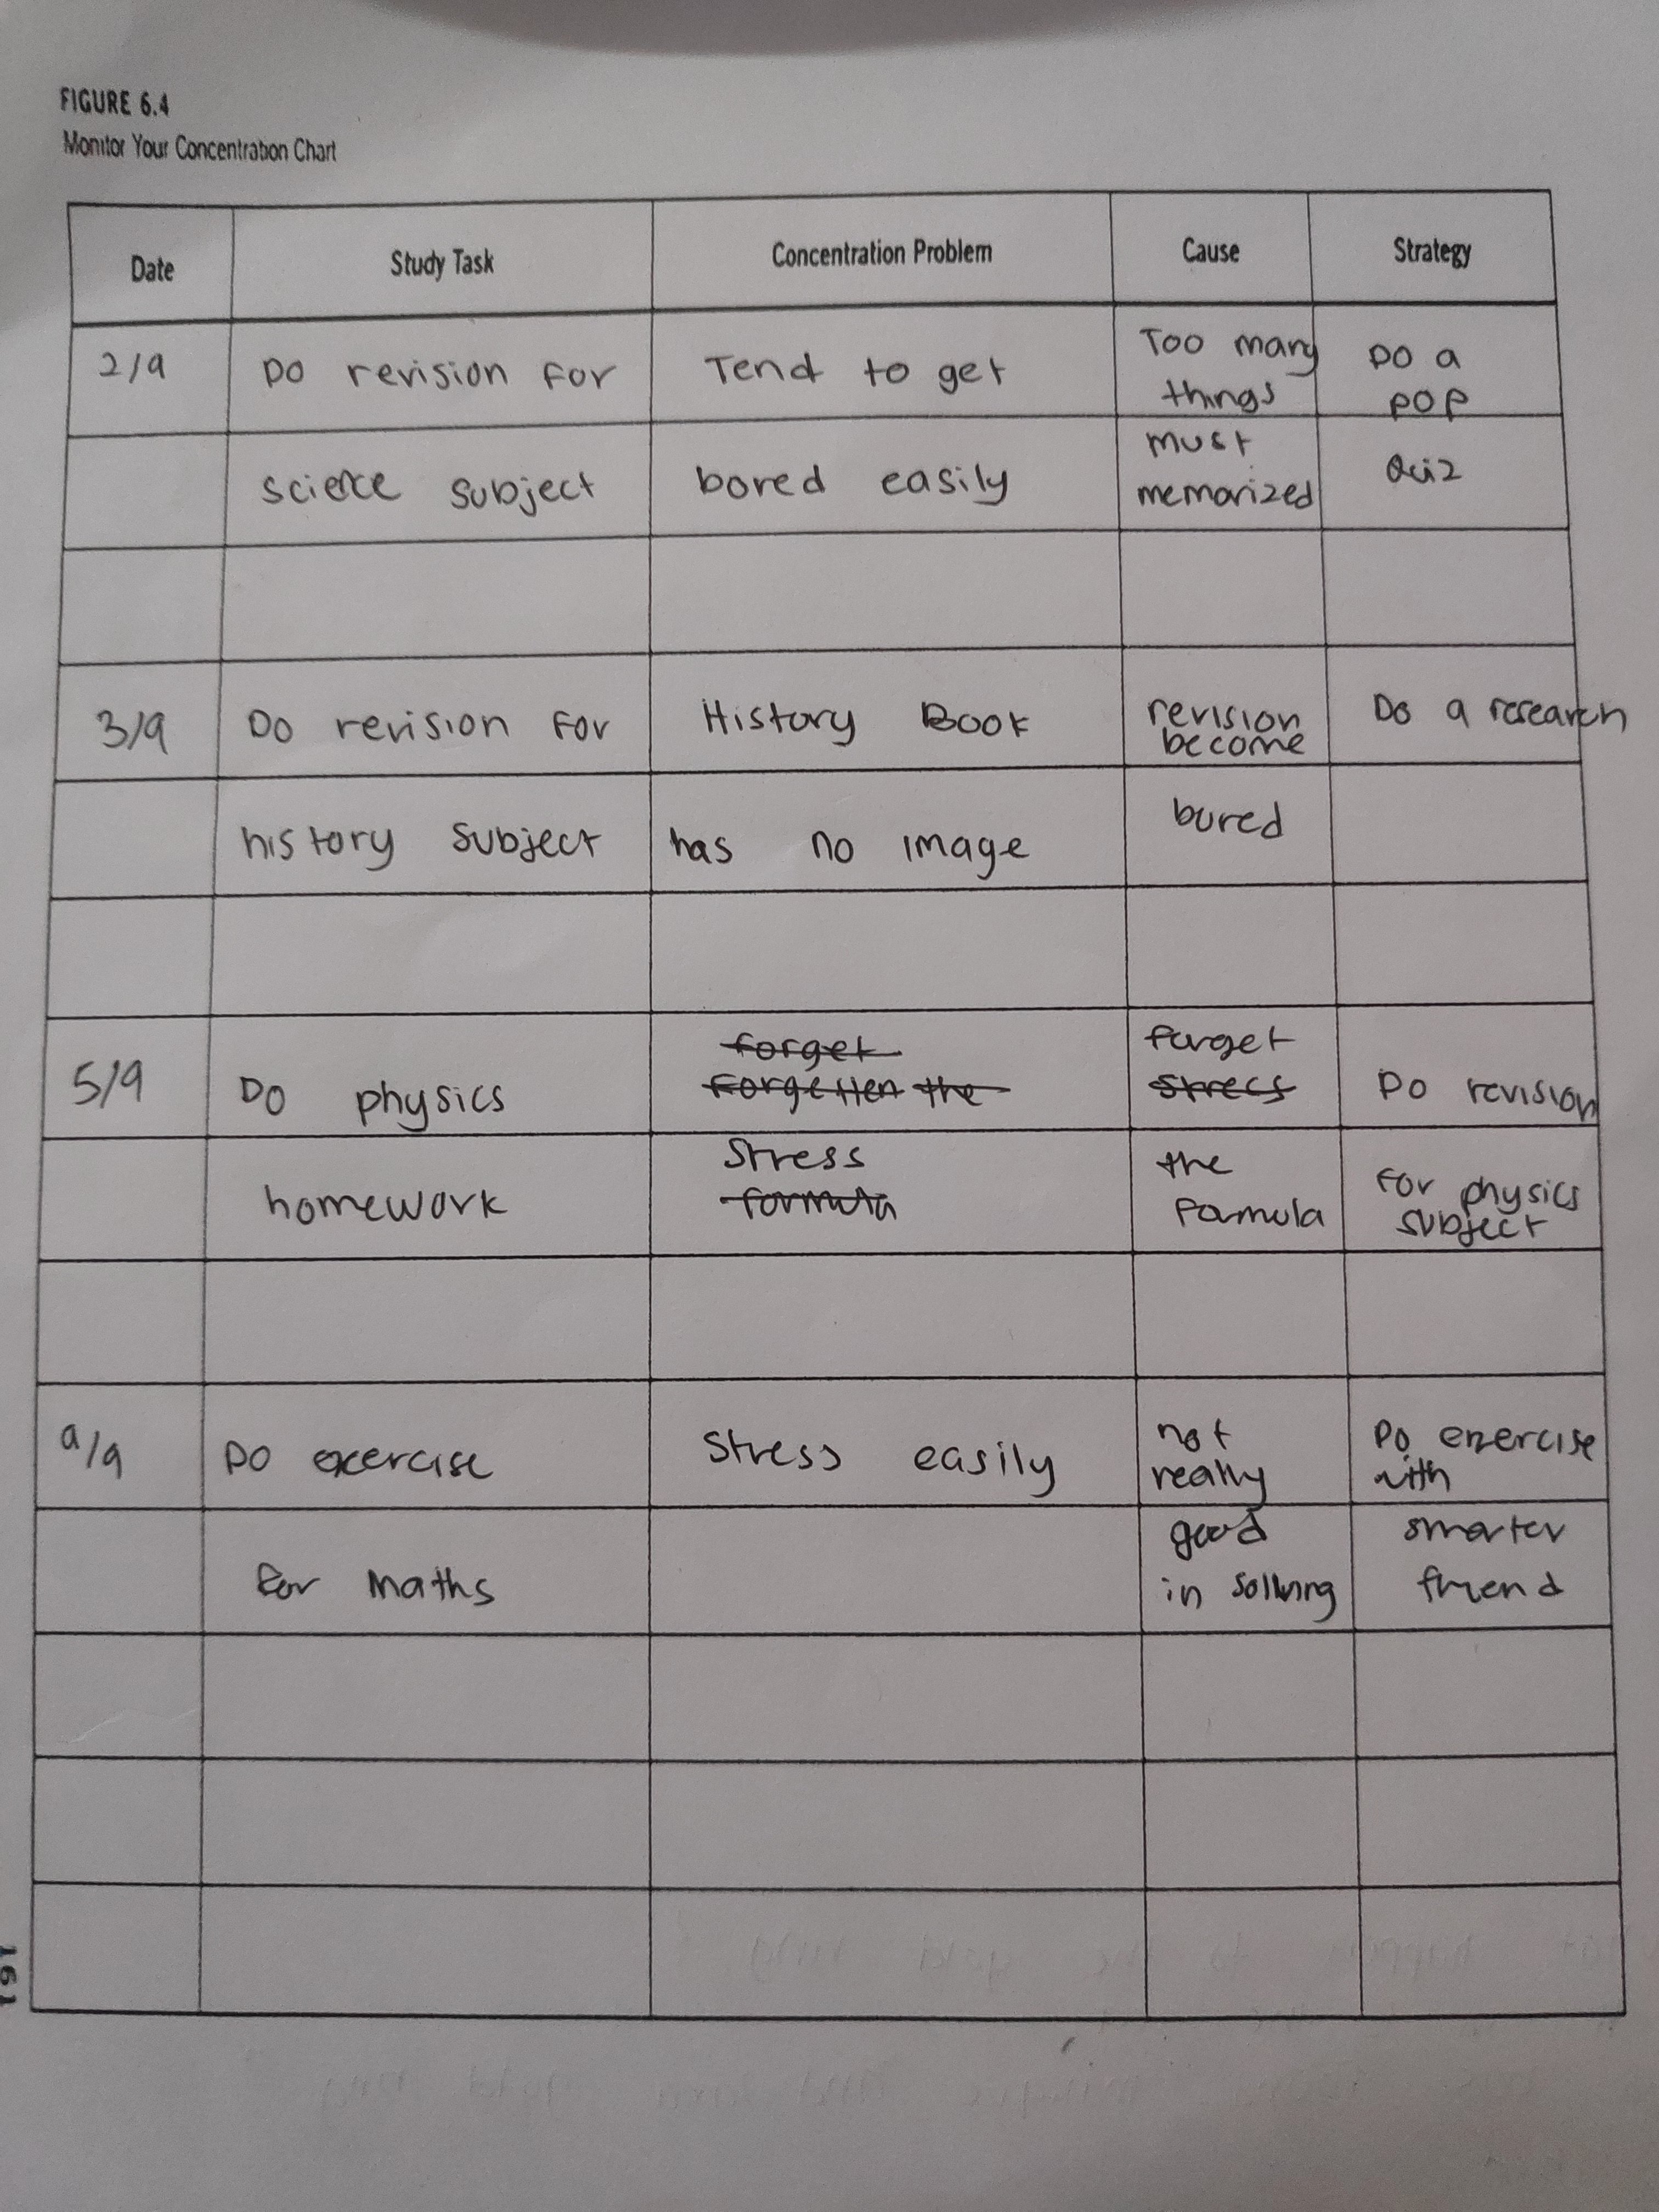 FIGURE 6.4
Monitor Your Concentration Chart
Date Study Task Concentration Problem Cause Strategy
2/9 Do revision for Tend to get Too many things Do a pop
science subject bored easily must memorized Quiz
3/9 Do revision for History Book revision become Do a research
history subject has no image bored
5/9 Do physics forget forgetten the forget stress Do revision
homework stress formula the formula for physics subject
9/9 Do exercise Stress easily not really Do exercise with
for Maths good in solving smarter friend
161